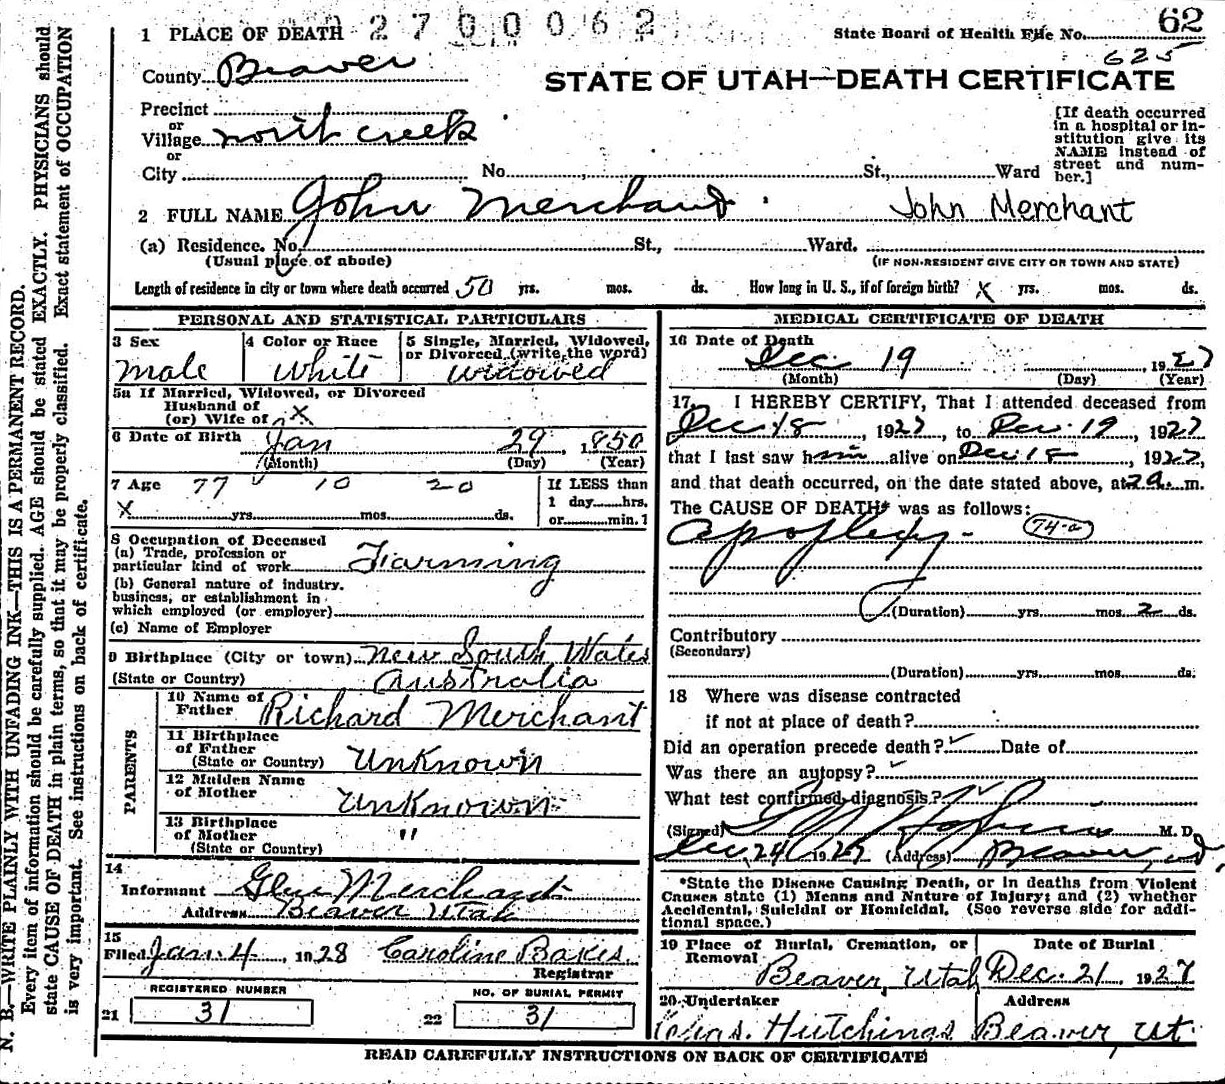 2700062
62
1 PLACE OF DEATH
State Board of Health File No.
625
County Beaver
STATE OF UTAH—DEATH CERTIFICATE
Precinct
or
Village North Creek
or
City No. St., Ward
[If death occurred
in a hospital or in-
stitution give its
NAME instead of
street and num-
ber.]
2 FULL NAME John Merchant John Merchant
(a) Residence. No. St., Ward.
(Usual place of abode) (IF NON-RESIDENT GIVE CITY OR TOWN AND STATE)
Length of residence in city or town where death occurred 50 yrs. mos. ds. How long in U. S., if of foreign birth? X yrs. mos. ds.
PERSONAL AND STATISTICAL PARTICULARS
3 Sex
male
4 Color or Race
White
5 Single, Married, Widowed,
or Divorced (write the word)
widowed
5a If Married, Widowed, or Divorced
Husband of
(or) Wife of X
6 Date of Birth Jan 29, 1850
(Month) (Day) (Year)
7 Age 77 10 20
X yrs. mos. ds.
If LESS than
1 day hrs.
or min.
8 Occupation of Deceased
(a) Trade, profession or
particular kind of work Farming
(b) General nature of industry.
business, or establishment in
which employed (or employer)
(c) Name of Employer
9 Birthplace (City or town) New South Wales
(State or Country) Australia
PARENTS
10 Name of
Father Richard Merchant
11 Birthplace
of Father
(State or Country) Unknown
12 Maiden Name
of Mother Unknown
13 Birthplace
of Mother "
(State or Country)
14
Informant Merchant
Address Beaver Utah
15
Filed Jan. 4, 1928 Caroline
Registrar
REGISTERED NUMBER
21 31
NO. OF BURIAL PERMIT
22 31
MEDICAL CERTIFICATE OF DEATH
16 Date of Death
Dec 19 1927
(Month) (Day) (Year)
17. I HEREBY CERTIFY, That I attended deceased from
Dec 18, 1927, to Dec. 19, 1927
that I last saw him alive on Dec 18, 1927,
and that death occurred, on the date stated above, at 2 a. m.
The CAUSE OF DEATH* was as follows:
apoplexy - 74-a
(Duration) yrs. mos. 2 ds.
Contributory
(Secondary)
(Duration) yrs. mos. ds.
18 Where was disease contracted
if not at place of death?
Did an operation precede death? Date of
Was there an autopsy?
What test confirmed diagnosis?
(Signed) M. D.
Dec 24 1927 (Address) Beaver, Ut,
*State the Disease Causing Death, or in deaths from Violent
Causes state (1) Means and Nature of Injury; and (2) whether
Accidental, Suicidal or Homicidal. (See reverse side for addi-
tional space.)
19 Place of Burial, Cremation, or
Removal
Beaver, Utah
Date of Burial
Dec. 21, 1927
20 Undertaker
Chas. Hutchings
Address
Beaver, Ut.
READ CAREFULLY INSTRUCTIONS ON BACK OF CERTIFICATE
N. B.—WRITE PLAINLY WITH UNFADING INK—THIS IS A PERMANENT RECORD.
Every item of information should be carefully supplied. AGE should be stated EXACTLY. PHYSICIANS should
state CAUSE OF DEATH in plain terms, so that it may be properly classified. Exact statement of OCCUPATION
is very important. See instructions on back of certificate.